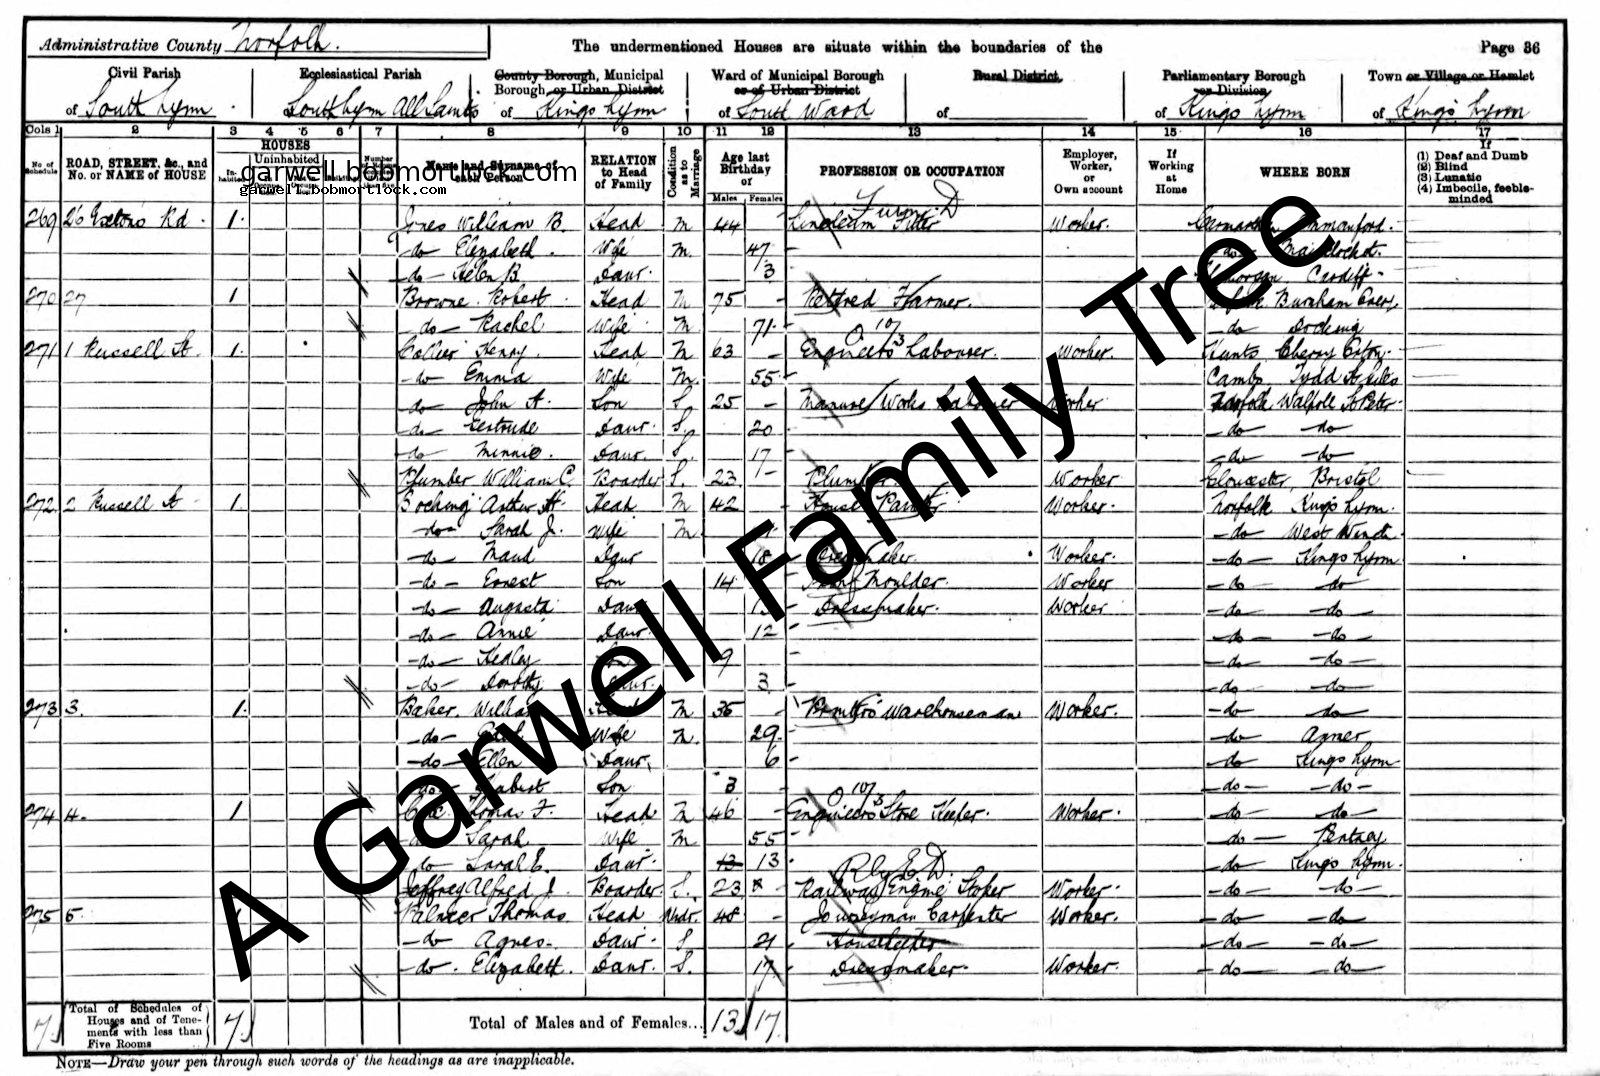 Administrative County Norfolk.
The undermentioned Houses are situate within the boundaries of the
Page 36
Civil Parish
of South Lynn
Ecclesiastical Parish
South Lynn All Saints
County Borough, Municipal
Borough, or Urban District
of Kings Lynn
Ward of Municipal Borough
or of Urban District
of South Ward
Rural District
of
Parliamentary Borough
or Division
of Kings Lynn
Town or Village or Hamlet
of Kings Lynn
Cols 1 2 3 4 5 6 7 8 9 10 11 12 13 14 15 16 17
No. of Schedule
ROAD, STREET, &c., and
No. or NAME of HOUSE
HOUSES
Uninhabited
Name and Surname of
each Person
RELATION
to Head
of Family
Condition
as to
Marriage
Age last
Birthday
of
Males Females
PROFESSION OR OCCUPATION
Employer,
Worker,
or
Own account
If
Working
at
Home
WHERE BORN
If
(1) Deaf and Dumb
(2) Blind
(3) Lunatic
(4) Imbecile, feeble-
minded
garwell.bobmortlock.com
garwell.bobmortlock.com
Furn. D
269 26 Rd. 1. Jones William B. Head M 44 Linoleum Fitter Worker. Ammanford.
do Elizabeth. Wife M. 47
do Helen B Daur. 3 Cardiff
270 27 1 Browne Robert Head M 75 Retired Farmer. Burnham
do Rachel Wife M 71 do Docking
O 10/3
271 1 Russell St. 1. Collier Henry. Head M 63 Engineers Labourer. Worker. Hunts
do Emma Wife M. 55 Cambs Tydd St Giles
do John A. Son S 25 Manure Works Labourer Worker Norfolk Walpole St Peter
do Gertrude Daur. S. 20 do do
do Minnie. Daur. S. 17 do do
Plumber William C. Boarder S. 23 Plumber Worker Gloucester, Bristol
272 2 Russell St 1. Arthur H. Head M 42 House Painter Worker. Norfolk Kings Lynn.
do Sarah J. Wife M do West Winch
do Maud Daur 18 Dressmaker Worker. do Kings Lynn
do Ernest Son 14 Iron Moulder. Worker do do
do Augusta Daur Dressmaker. Worker do do
do Annie Daur. 12 do do
do Hedley Son 9 do do
do Dorothy Daur. 3 do do
273 3. 1. Baker. William Head M 35 Warehouseman Worker. do do
do Wife M. 29 do
do Ellen Daur. 6 do Kings Lynn
do Son 3 do do
O 10/3
274 4. 1 Thomas F. Head M 46 Engineers Store Keeper. Worker. do do
do Sarah Wife M 55 do Pentney
do Sarah E. Daur. 13 13 do Kings Lynn.
Rly E. D.
Jeffrey Alfred J. Boarder. S. 23 Railway Engine Stoker Worker. do do
275 5. 1 Palmer Thomas Head Widr. 48 Journeyman Carpenter Worker. do do
do Agnes Daur. S 21 Housekeeper do do
do Elizabeth. Daur. S. 17 Dressmaker. Worker. do do
7. Total of Schedules of
Houses and of Tene-
ments with less than
Five Rooms
7.
Total of Males and of Females... 13 17.
NOTE—Draw your pen through such words of the headings as are inapplicable.
A Garwell Family Tree